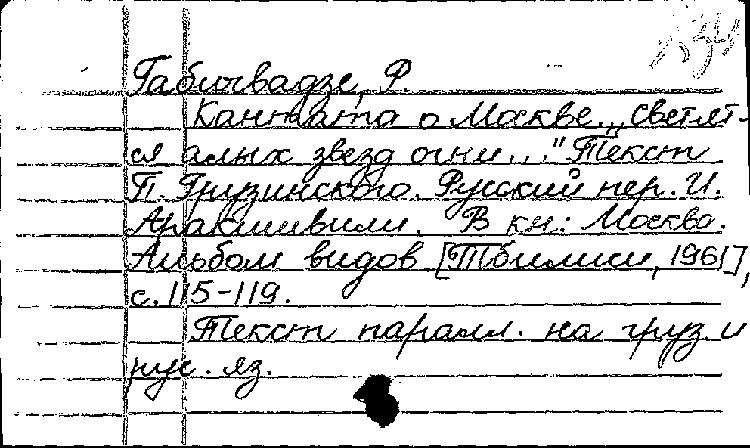 Габичвадзе, Р.
Кантата о Москве. „Светят-
ся алых звезд огни..." Текст
П. Грузинского. Русский пер. И.
Аракишвили. В кн.: Москва.
Альбом видов [Тбилиси, 1961],
с. 115-119.
Текст паралл. на груз. и
рус. яз.